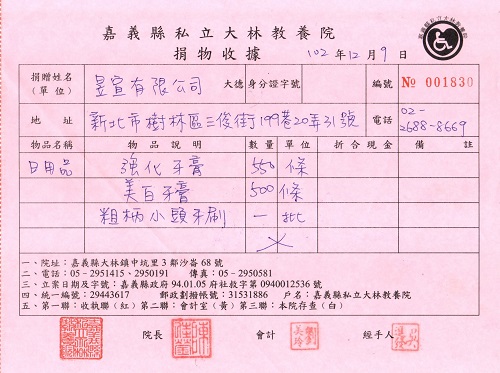 嘉義縣私立大林教養院
捐物收據 102年12月9日
捐贈姓名(單位) 昱宣有限公司 大德 身分證字號 編號 № 001830
地址 新北市樹林區三俊街199巷20弄31號 電話 02-2688-8669
物品名稱 物品說明 數量 單位 折合現金 備註
日用品 強化牙膏 550 條
美白牙膏 500 條
粗柄小頭牙刷 一 批
一、院址：嘉義縣大林鎮中坑里3鄰沙崙68號
二、電話：05-2951415、2950191 傳真：05-2950581
三、立案日期及字號：嘉義縣政府94.01.05府社救字第0940012536號
四、統一編號：29443617 郵政劃撥帳號：31531886 戶名：嘉義縣私立大林教養院
五、第一聯：收執聯(紅)第二聯：會計室(黃)第三聯：本院存查(白)
院長 會計 經手人